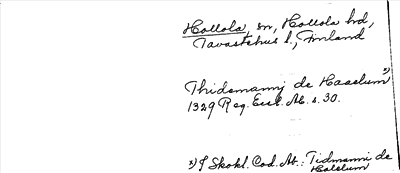 Hollola, sn, Hollola hd,
Tavastehus l., Finland
Thidemannj de Haaelum x)
1329 Reg. Eccl. Ab. s. 30.
x) I Skokl. Cod. Ab.: Tidmanni de
Holelum